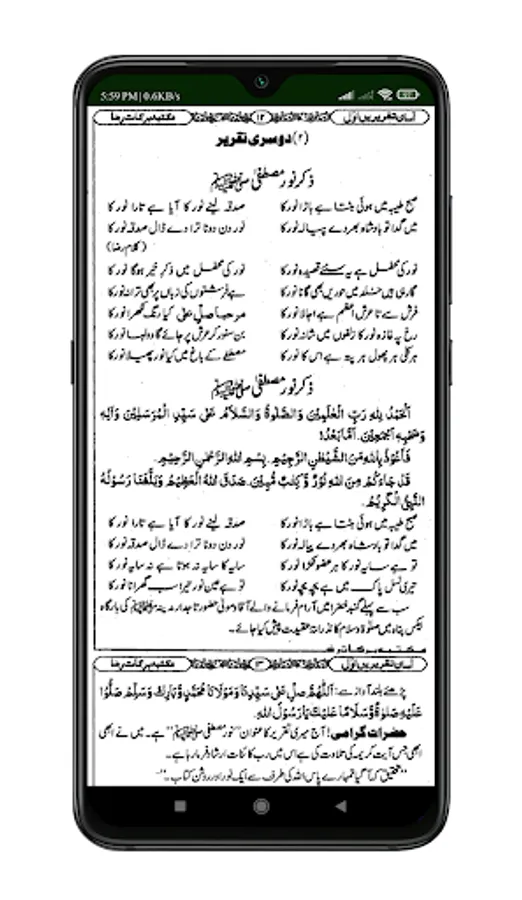 5:59 PM | 0.6KB/s
آسان تقریریں اول ۱۲ مکتبہ برکات رضا
(۲) دوسری تقریر
ذکر نور مصطفیٰ ﷺ
صبح طیبہ میں ہوئی بٹتا ہے باڑا نور کا صدقہ لینے نور کا آیا ہے تارا نور کا
میں گدا تو بادشاہ بھر دے پیالہ نور کا نور دن دونا ترا دے ڈال صدقہ نور کا
(کلام رضا)
نور کی محفل ہے یہ سنئے قصیدہ نور کا نور کی محفل میں ذکر خیر ہوگا نور کا
گا رہی ہیں خلد میں حوریں بھی گانا نور کا ہے فرشتوں کی زباں پر بھی ترانہ نور کا
فرش سے تا عرش اعظم ہے اجالا نور کا مرحبا صل علی کیا رنگ نکھرا نور کا
رخ پہ غازہ نور کا زلفوں میں شانہ نور کا بن سنور کر عرش پر جائے گا دولہا نور کا
ہر کلی ہر پھول ہر پتہ ہے اس کا نور کا مصطفےٰ کے باغ میں کیا نور پھیلا نور کا
ذکر نور مصطفیٰ ﷺ
اَلْحَمْدُ لِلّٰهِ رَبِّ الْعٰلَمِيْنَ وَالصَّلٰوةُ وَالسَّلَامُ عَلٰى سَيِّدِ الْمُرْسَلِيْنَ وَاٰلِهٖ
وَصَحْبِهٖ اَجْمَعِيْنَ۔ اَمَّا بَعْدُ!
فَاَعُوْذُ بِاللّٰهِ مِنَ الشَّيْطٰنِ الرَّجِيْمِ۔ بِسْمِ اللّٰهِ الرَّحْمٰنِ الرَّحِيْمِ۔
قَدْ جَاءَكُمْ مِنَ اللّٰهِ نُوْرٌ وَّ كِتَابٌ مُّبِيْنٌ۔ صَدَقَ اللّٰهُ الْعَظِيْمُ وَبَلَّغَنَا رَسُوْلُهُ
النَّبِيُّ الْكَرِيْمُ۔
صبح طیبہ میں ہوئی بٹتا ہے باڑا نور کا صدقہ لینے نور کا آیا ہے تارا نور کا
میں گدا تو بادشاہ بھر دے پیالہ نور کا نور دن دونا ترا دے ڈال صدقہ نور کا
تو ہے سایہ نور کا ہر عضو ٹکڑا نور کا سایہ کا سایہ نہ ہوتا ہے نہ سایہ نور کا
تیری نسل پاک میں ہے بچہ بچہ نور کا تو ہے عین نور تیرا سب گھرانا نور کا
سب سے پہلے گنبد خضرا میں آرام فرمانے والے آقا و مولیٰ حضور تاجدار مدینہ ﷺ کی بارگاہ
بیکس پناہ میں صلوٰۃ و سلام کا نذرانۂ عقیدت پیش کیا جائے۔
آسان تقریریں اول ۱۳ مکتبہ برکات رضا
پڑھئے بلند آواز سے: اَللّٰهُمَّ صَلِّ عَلٰى سَيِّدِنَا وَمَوْلَانَا مُحَمَّدٍ وَّ بَارِكْ وَسَلِّمْ صَلُّوْا
عَلَيْهِ صَلٰوةً وَّسَلَامًا عَلَيْكَ يَا رَسُوْلَ اللّٰهِ۔
حضرات گرامی! آج میری تقریر کا عنوان "نور مصطفیٰ ﷺ" ہے۔ میں نے ابھی
ابھی جس آیت کریمہ کی تلاوت کی ہے اس میں رب کائنات ارشاد فرما رہا ہے۔
"تحقیق کہ آ گیا تمہارے پاس اللہ کی طرف سے ایک نور اور روشن کتاب۔"